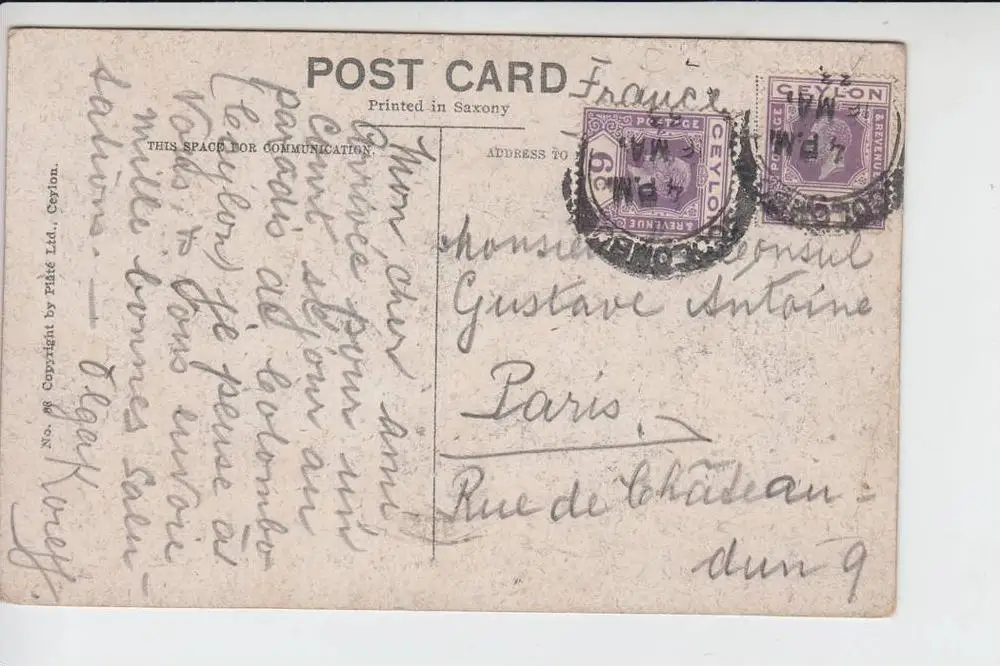 POST CARD
Printed in Saxony
France
THIS SPACE FOR COMMUNICATION.
ADDRESS TO
Mon cher ami
Arrivée pour un
court séjour au
paradis de Colombo
(Ceylon) je pense à
Vous, & Vous envoie
mille bonnes Salu-
tations. — Olga Koreff.
Monsieur Consul
Gustave Antoine
Paris.
Rue de Château-
dun 9
No. 88 Copyright by Plâté Ltd., Ceylon.
CEYLON
POSTAGE
& REVENUE
6 C
4 P.M
MA
CEYLON
POSTAGE
& REVENUE
6
4 P.M
16 MA
23